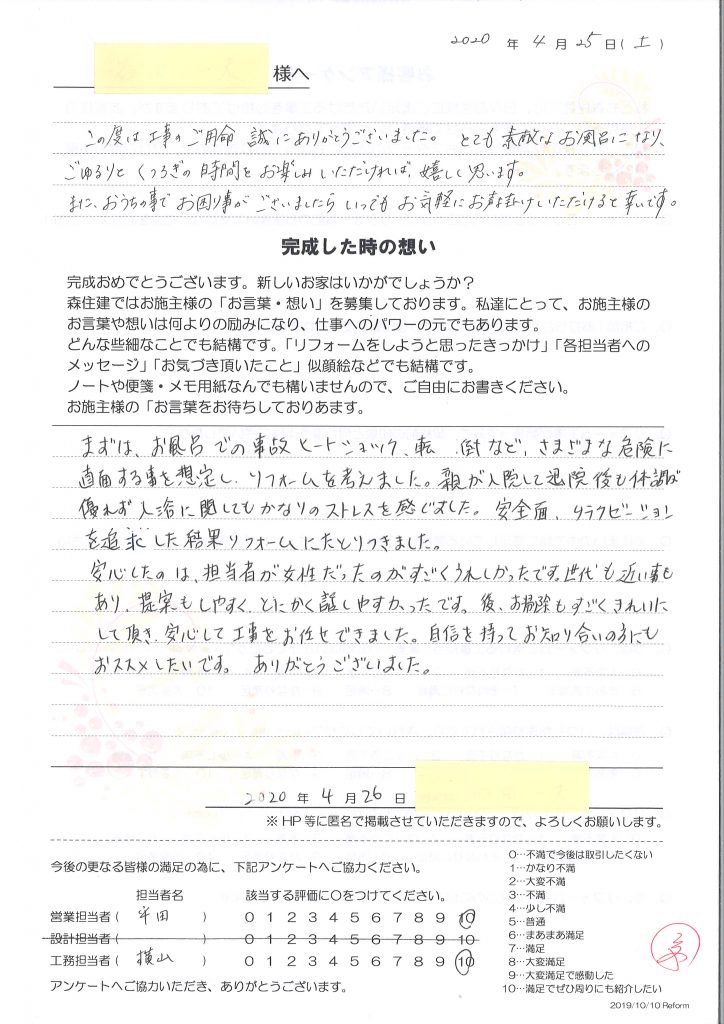 2020 年 4 月 25 日(土)
様へ
この度は工事のご用命 誠にありがとうございました。 とても素敵なお風呂になり、
ごゆるりと くつろぎの時間を お楽しみいただければ、嬉しく思います。
また、おうちの事で お困り事が ございましたら いつでも お気軽にお声掛けいただけると幸いです。
完成した時の想い
完成おめでとうございます。新しいお家はいかがでしょうか？
森住建ではお施主様の「お言葉・想い」を募集しております。私達にとって、お施主様の
お言葉や想いは何よりの励みになり、仕事へのパワーの元でもあります。
どんな些細なことでも結構です。「リフォームをしようと思ったきっかけ」「各担当者への
メッセージ」「お気づき頂いたこと」似顔絵などでも結構です。
ノートや便箋・メモ用紙なんでも構いませんので、ご自由にお書きください。
お施主様の「お言葉をお待ちしておりあます。
まずは、お風呂での事故 ヒートショック、転 倒など、さまざまな危険に
直面する事を想定し、リフォームを考えました。親が入院して退院後も体調が
優れず入浴に関してもかなりのストレスを感じました。安全面、リラクゼーション
を追求した結果リフォームにたどりつきました。
安心したのは、担当者が女性だったのがすごくうれしかったです。世代も近い事も
あり、提案もしやすく、とにかく話しやすかったです。後、お掃除もすごくきれいに
して頂き、安心して工事をお任せできました。自信を持ってお知り合いの方にも
おススメしたいです。 ありがとうございました。
2020 年 4 月 26 日
※HP 等に匿名で掲載させていただきますので、よろしくお願いします。
今後の更なる皆様の満足の為に、下記アンケートへご協力ください。
担当者名 該当する評価に○をつけてください。
営業担当者( 半田 ) 0 1 2 3 4 5 6 7 8 9 10
設計担当者( ) 0 1 2 3 4 5 6 7 8 9 10
工務担当者( 横山 ) 0 1 2 3 4 5 6 7 8 9 10
アンケートへご協力いただき、ありがとうございます。
0…不満で今後は取引したくない
1…かなり不満
2…大変不満
3…不満
4…少し不満
5…普通
6…まあまあ満足
7…満足
8…大変満足
9…大変満足で感動した
10…満足でぜひ周りにも紹介したい
2019/10/10 Reform